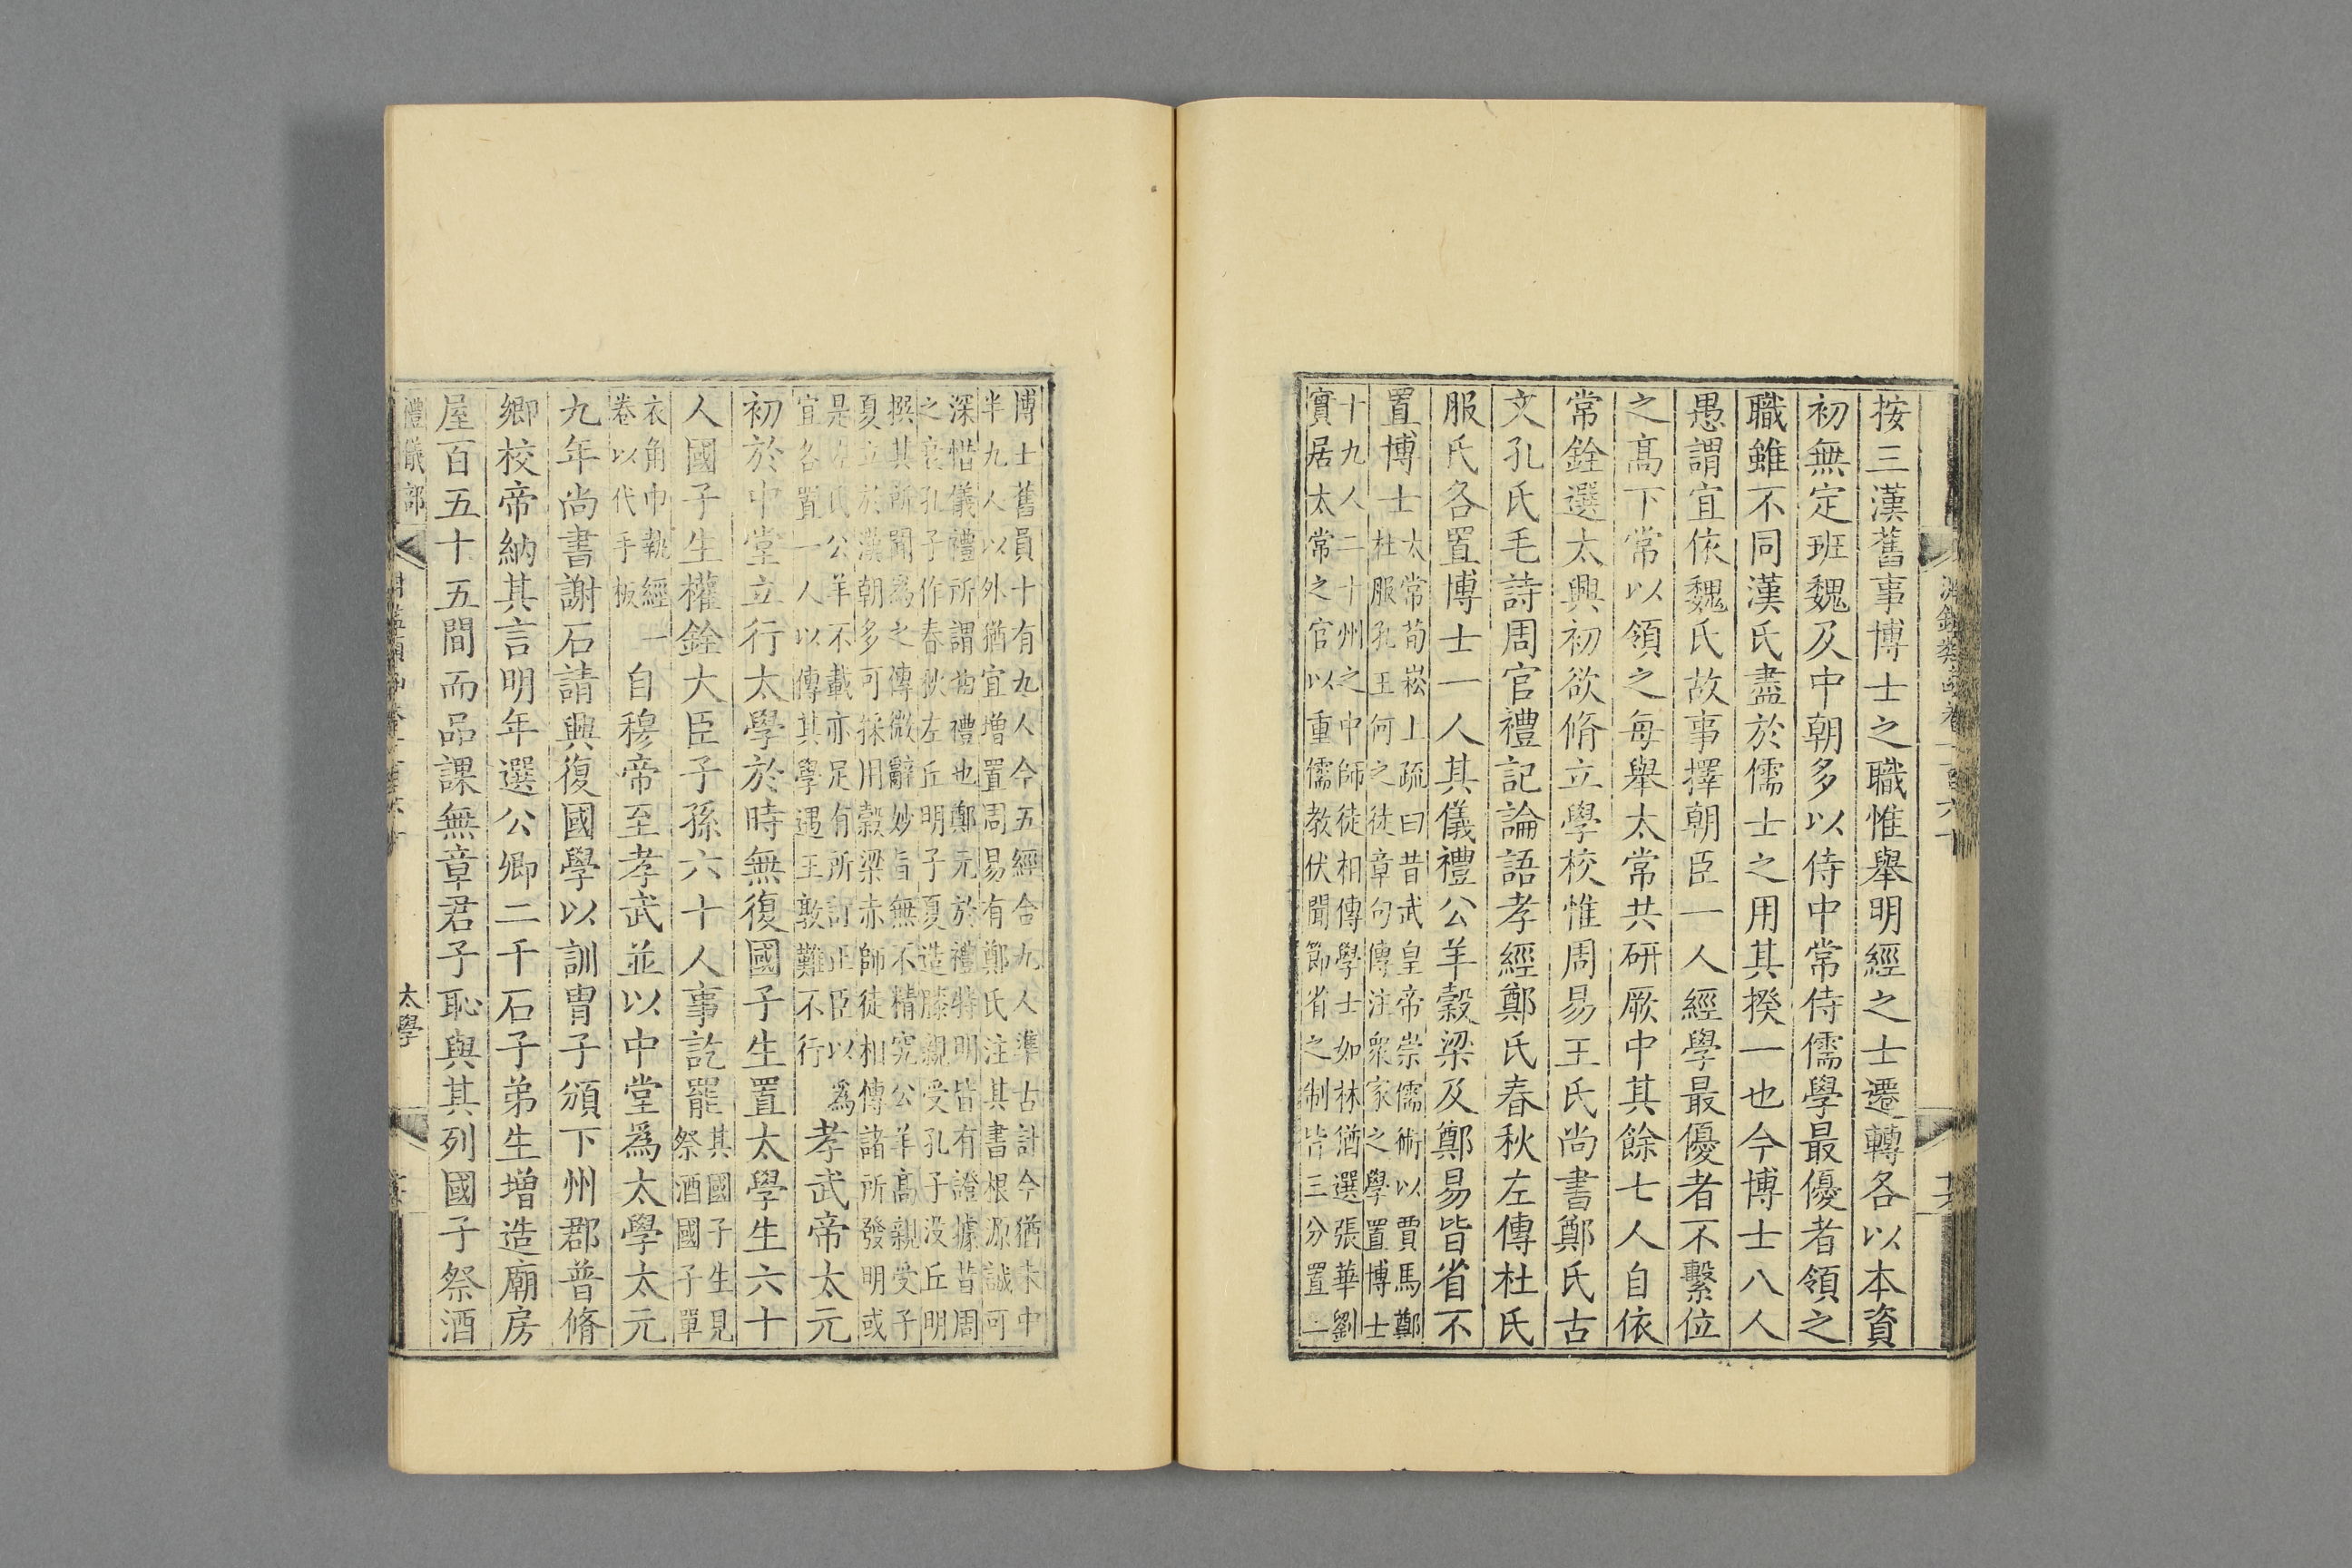 按三漢舊事博士之職惟舉明經之士遷轉各以本資
初無定班魏及中朝多以侍中常侍儒學最優者領之
職雖不同漢氏盡於儒士之用其揆一也今博士八人
愚謂宜依魏氏故事擇朝臣一人經學最優者不繫位
之高下常以領之每舉太常共研厥中其餘七人自依
常銓選太興初欲脩立學校惟周易王氏尚書鄭氏古
文孔氏毛詩周官禮記論語孝經鄭氏春秋左傳杜氏
服氏各置博士一人其儀禮公羊穀梁及鄭易皆省不
置博士
太常荀崧上疏曰昔武皇帝崇儒術以賈馬鄭
杜服孔王何之徒章句傳注衆家之學置博士
十九人二十州之中師徒相傳學士如林猶選張華劉
實居太常之官以重儒教伏聞節省之制皆三分置二
博士舊員十有九人今五經合九人準古計今猶未中
半九人以外猶宜增置周易有鄭氏注其書根源誠可
深惜儀禮所謂曲禮也鄭元於禮特明皆有證據昔周
之衰孔子作春秋左丘明子夏造膝親受孔子没丘明
撰其所聞爲之傳微辭妙旨無不精究公羊高親受子
夏立於漢朝多可採用穀梁赤師徒相傳諸所發明或
是左氏公羊不載亦足有所訂正臣以爲
宜各置一人以傳其學遇王敦難不行
孝武帝太元
初於中堂立行太學於時無復國子生置太學生六十
人國子生權銓大臣子孫六十人事訖罷
其國子生見
祭酒國子單
衣角巾執經一
卷以代手板
自穆帝至孝武並以中堂爲太學太元
九年尚書謝石請興復國學以訓胄子頒下州郡普脩
鄉校帝納其言明年選公卿二千石子弟生增造廟房
屋百五十五間而品課無章君子恥與其列國子祭酒
禮儀部
太學